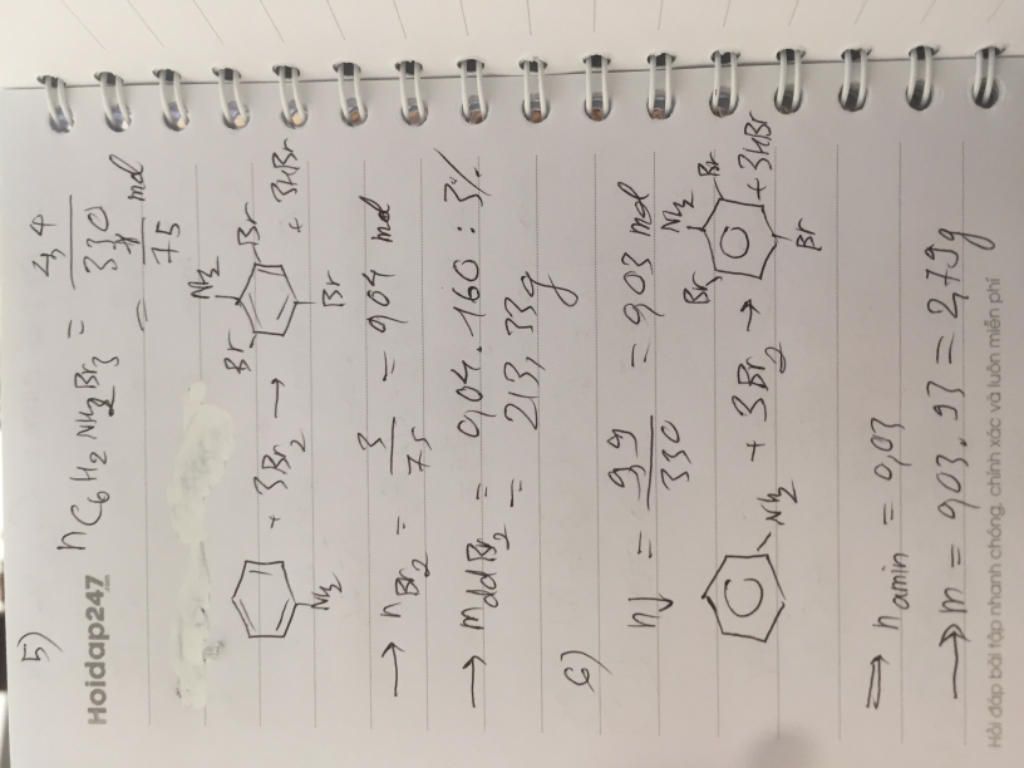 5)
Hoidap247
n C6H2NH2Br3 = 4,4/330
= 1/75 mol
NH2 + 3Br2 → Br NH2 Br Br + 3HBr
→ nBr2 = 3/75 = 0,04 mol
→ m dd Br2 = 0,04 . 160 : 3%
= 213,33g
6)
n↓ = 9,9/330 = 0,03 mol
NH2 + 3Br2 → Br NH2 Br Br + 3HBr
⇒ n amin = 0,03
→ m = 0,03 . 93 = 2,79g
Hỏi đáp bài tập nhanh chóng, chính xác và luôn miễn phí